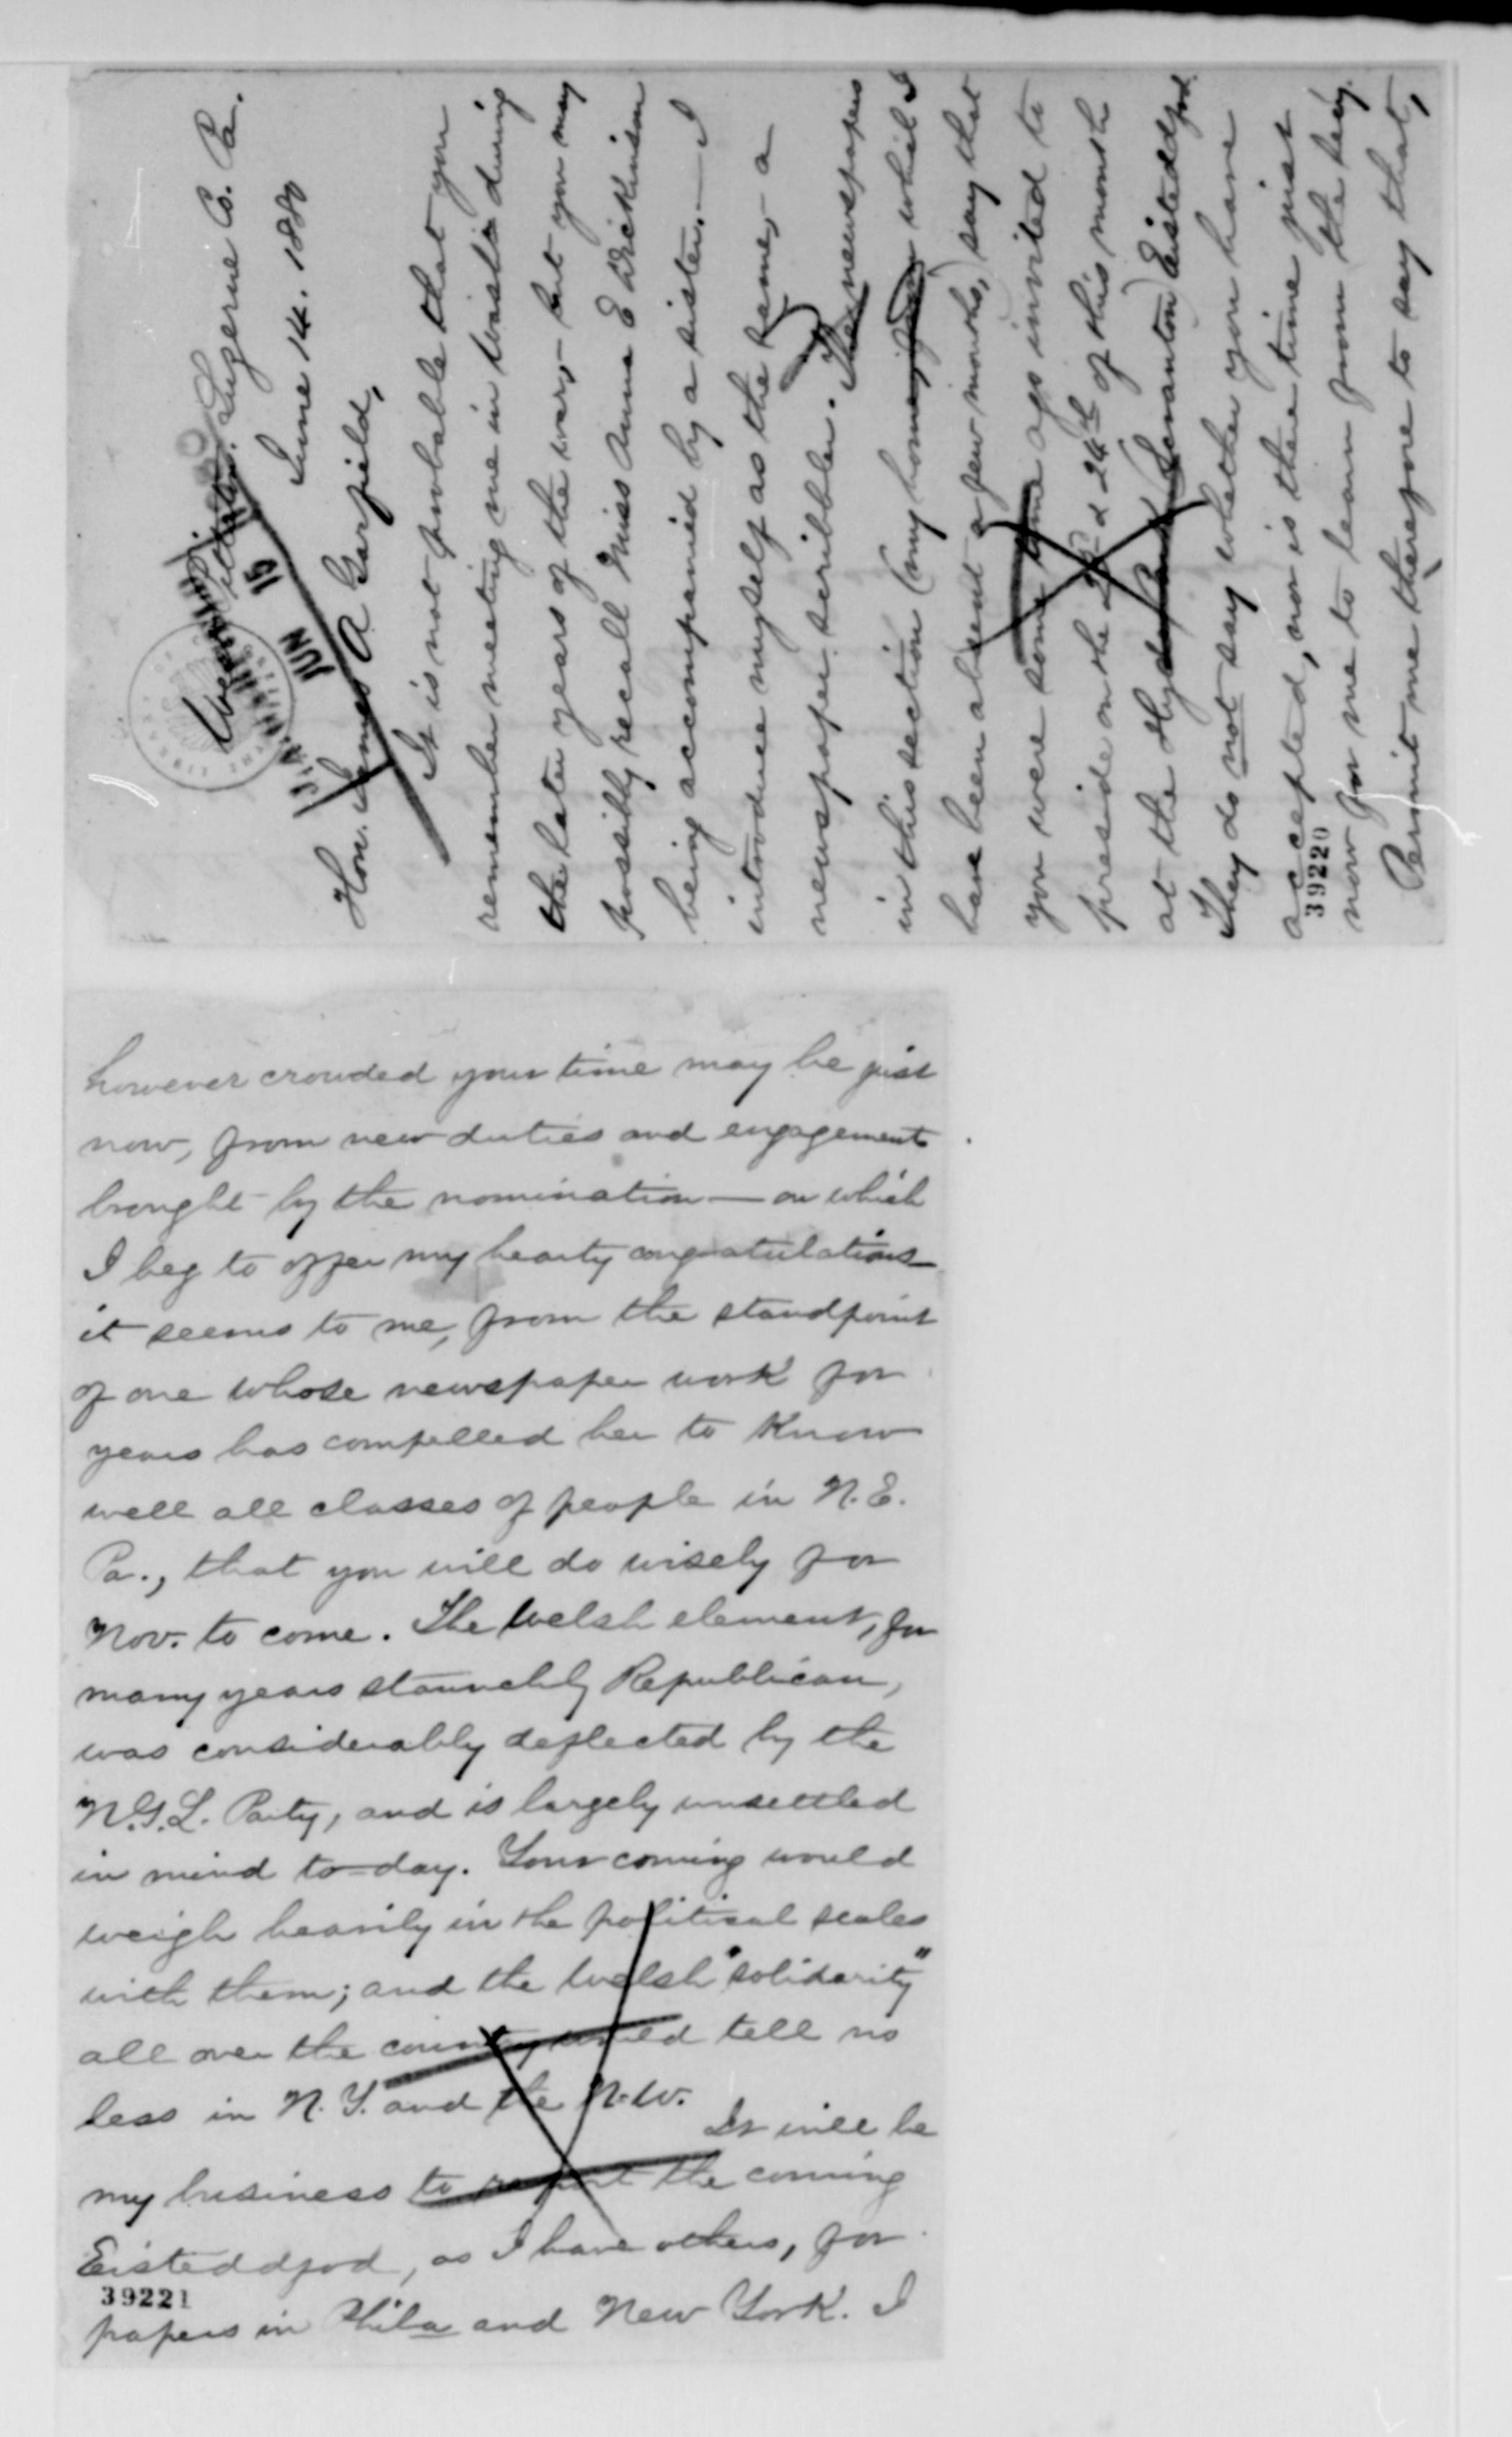 West Pittston, Luzerne Co. Pa.
June 14. 1880
J.A. GARFIELD
JUN 15
Hon. James A Garfield,
It is not probable that you
remember meeting me in Wash⁠n during
the later years of the war,- but you may
possibly recall Miss Anna E Dickinson
being accompanied by a sister,— I
introduce myself as the same,- a
newspaper scribbler. The newspapers
in this section (my home, from which I
have been absent a few months,) say that
you were some time ago invited to
preside on the 23d & 24th of this month
at the Hyde Park (Scranton) Eisteddfod.
They do not say whether you have
accepted, nor is there time just
now for me to learn from the
39220
Permit me therefore to say that,
however crowded your time may be just
now, from new duties and engagements
brought by the nomination — on which
I beg to offer my hearty congratulations—
it seems to me, from the standpoint
of one whose newspaper work for
years has compelled her to know
well all classes of people in N.E.
Pa., that you will do wisely for
Nov. to come. The Welsh element, for
many years staunchly Republican,
was considerably deflected by the
N.G.L. Party, and is largely unsettled
in mind to-day. Your coming would
weigh heavily in the political scales
with them; and the Welsh "solidarity"
all over the country would tell no
less in N.Y. and the N.W.
It will be
my business to report the coming
Eisteddfod, as I have others, for
39221
papers in Phila and New York. I